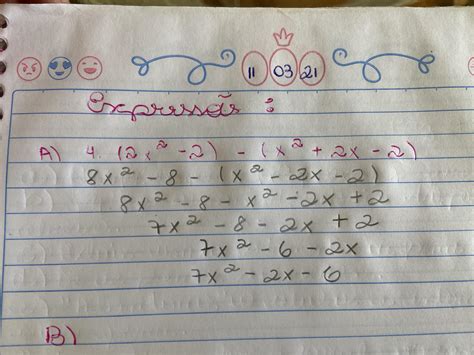 11 03 21
Expressão :
A) 4. (2x² - 2) - (x² + 2x - 2)
8x² - 8 - (x² - 2x - 2)
8x² - 8 - x² - 2x + 2
7x² - 8 - 2x + 2
7x² - 6 - 2x
7x² - 2x - 6
B)